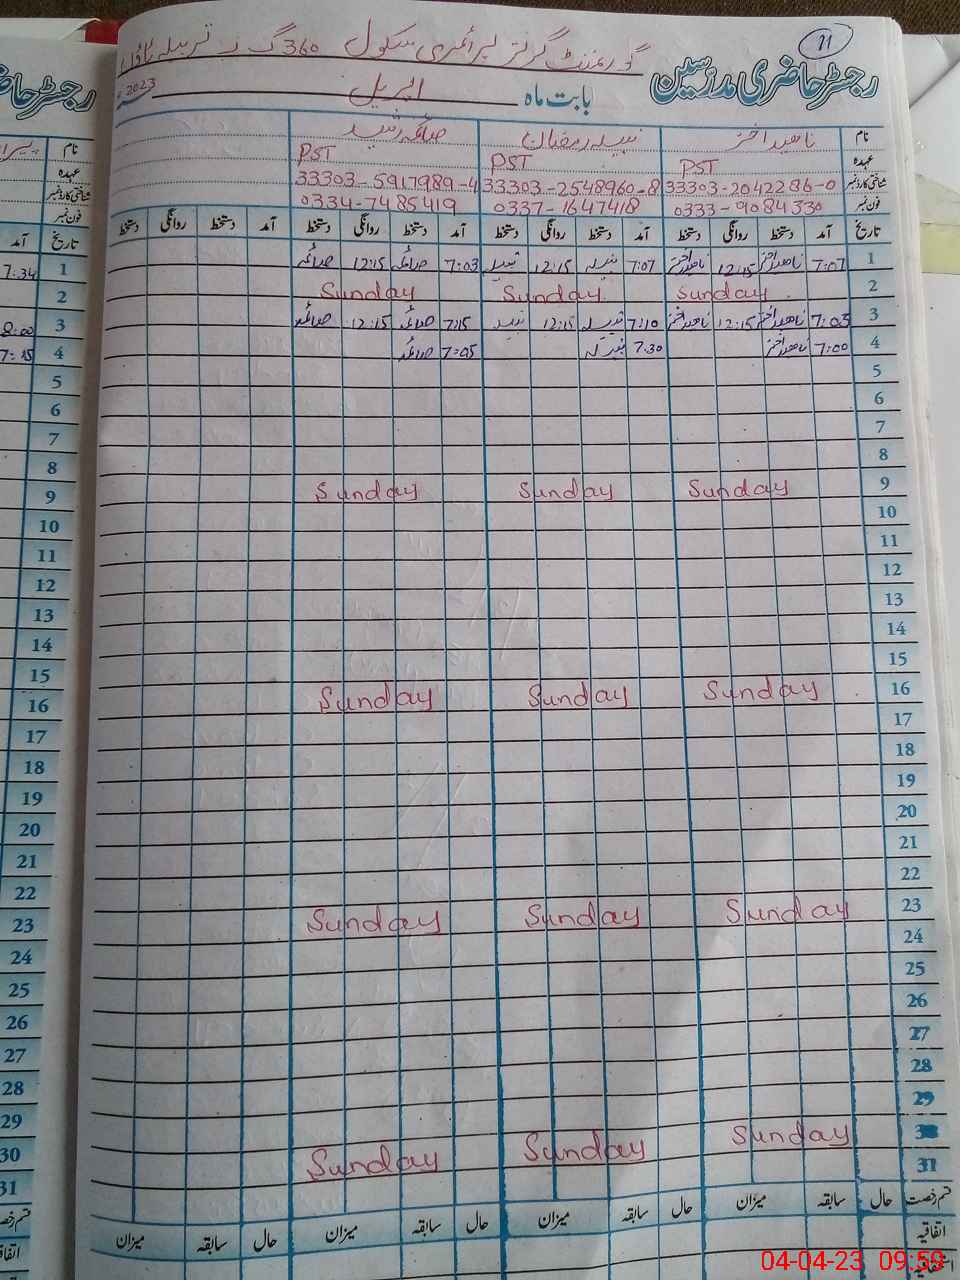 11
گورنمنٹ گرلز پرائمری سکول 360 گ ب
رجسٹر حاضری مدرسین
بابت ماہ اپریل 2023
نام ناھید اختر نبیلہ رمضان صائمہ رشید
عہدہ PST PST PST
شناختی کارڈ نمبر 33303-2042286-0 33303-2548960-8 33303-5917989-4
فون نمبر 0333-9084330 0337-1647418 0334-7485419
تاریخ آمد دستخط روانگی دستخط آمد دستخط روانگی دستخط آمد دستخط روانگی دستخط آمد دستخط روانگی دستخط
1 7:07 ناھید اختر 12:15 ناھید اختر 7:07 نبیلہ 12:15 نبیلہ 7:03 صائمہ 12:15 صائمہ
2 Sunday Sunday Sunday
3 7:03 ناھید اختر 12:15 ناھید اختر 7:10 نبیلہ 12:15 نبیلہ 7:15 صائمہ 12:15 صائمہ
4 7:00 ناھید اختر 7:30 نبیلہ 7:05 صائمہ
5
6
7
8
9 Sunday Sunday Sunday
10
11
12
13
14
15
16 Sunday Sunday Sunday
17
18
19
20
21
22
23 Sunday Sunday Sunday
24
25
26
27
28
29
30 Sunday Sunday Sunday
31
قسم رخصت حال سابقہ میزان حال سابقہ میزان حال سابقہ میزان حال سابقہ میزان
اتفاقیہ
استحقاقیہ
نام
عہدہ
شناختی کارڈ نمبر
فون نمبر
تاریخ آمد
1 7:34
2
3 8:00
4 7:15
5
6
7
8
9
10
11
12
13
14
15
16
17
18
19
20
21
22
23
24
25
26
27
28
29
30
31
04-04-23 09:59